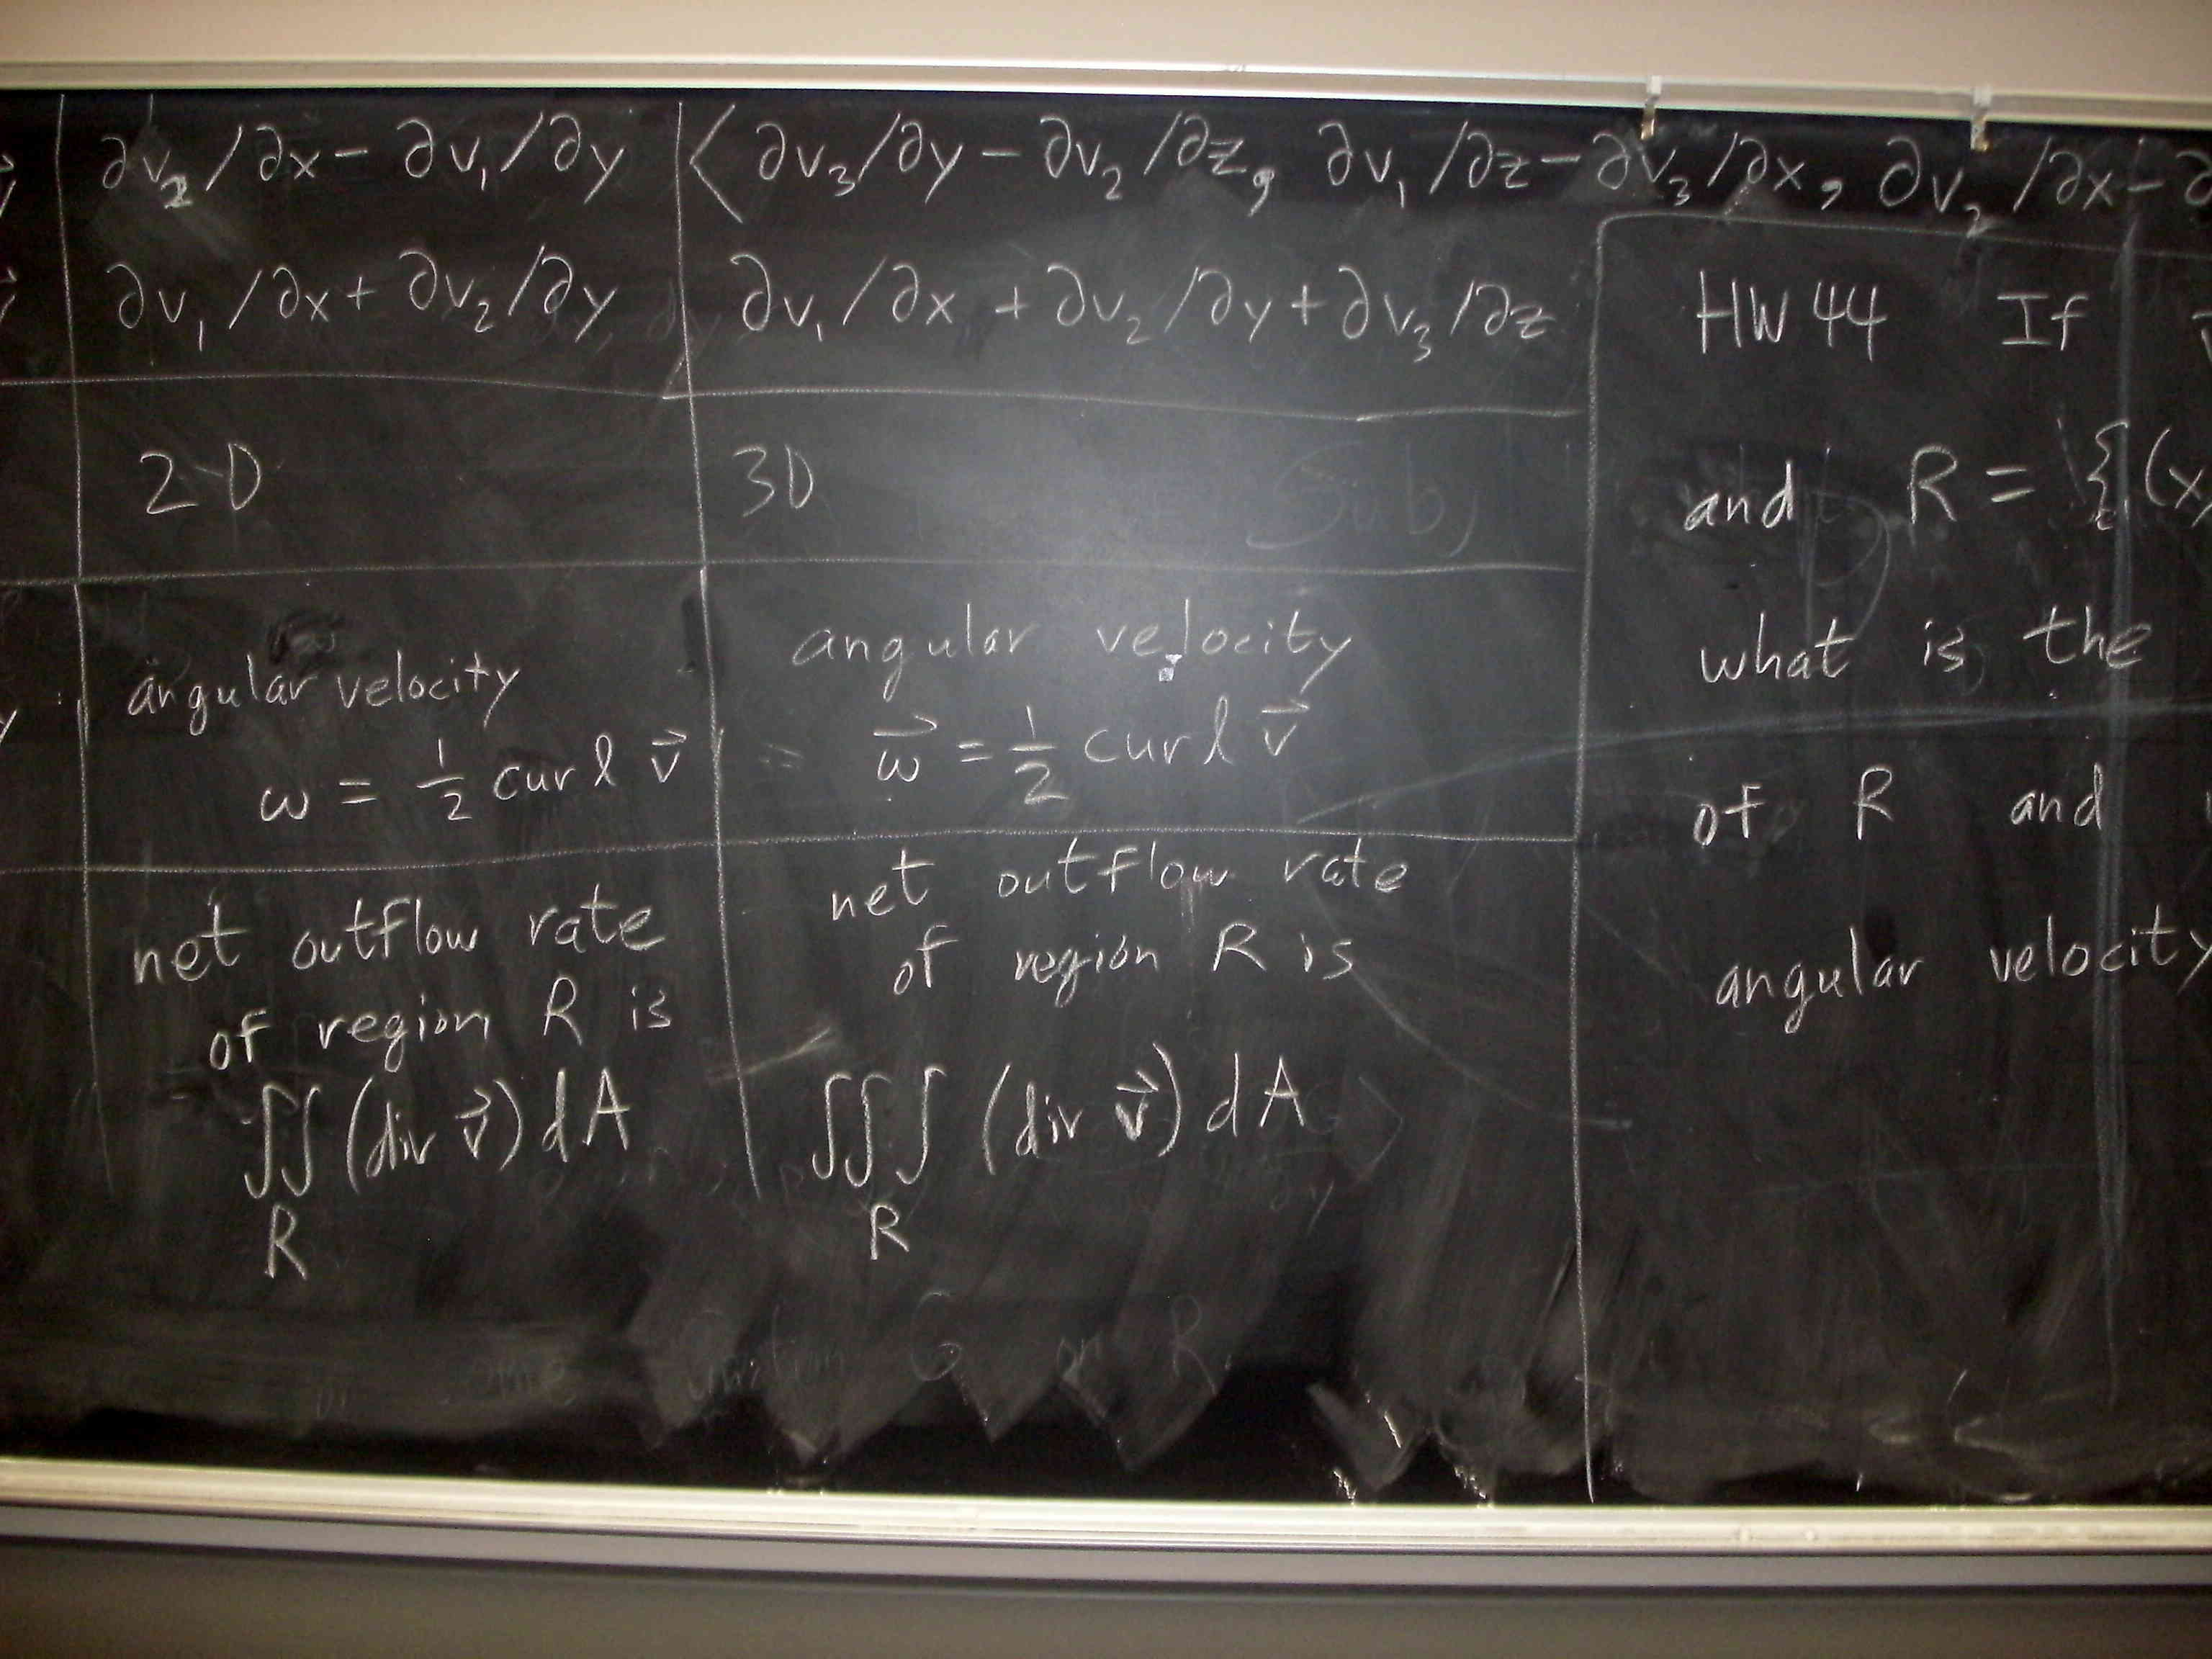 ∂v₂/∂x - ∂v₁/∂y
⟨∂v₃/∂y - ∂v₂/∂z, ∂v₁/∂z - ∂v₃/∂x, ∂v₂/∂x - ∂
∂v₁/∂x + ∂v₂/∂y
∂v₁/∂x + ∂v₂/∂y + ∂v₃/∂z
2-D
3D
angular velocity
ω = 1/2 curl v⃗
angular velocity
ω⃗ = 1/2 curl v⃗
net outflow rate
of region R is
∬ (div v⃗) dA
R
net outflow rate
of region R is
∭ (div v⃗) dA
R
HW 44 If
and R = {(x,
what is the
of R and
angular velocity